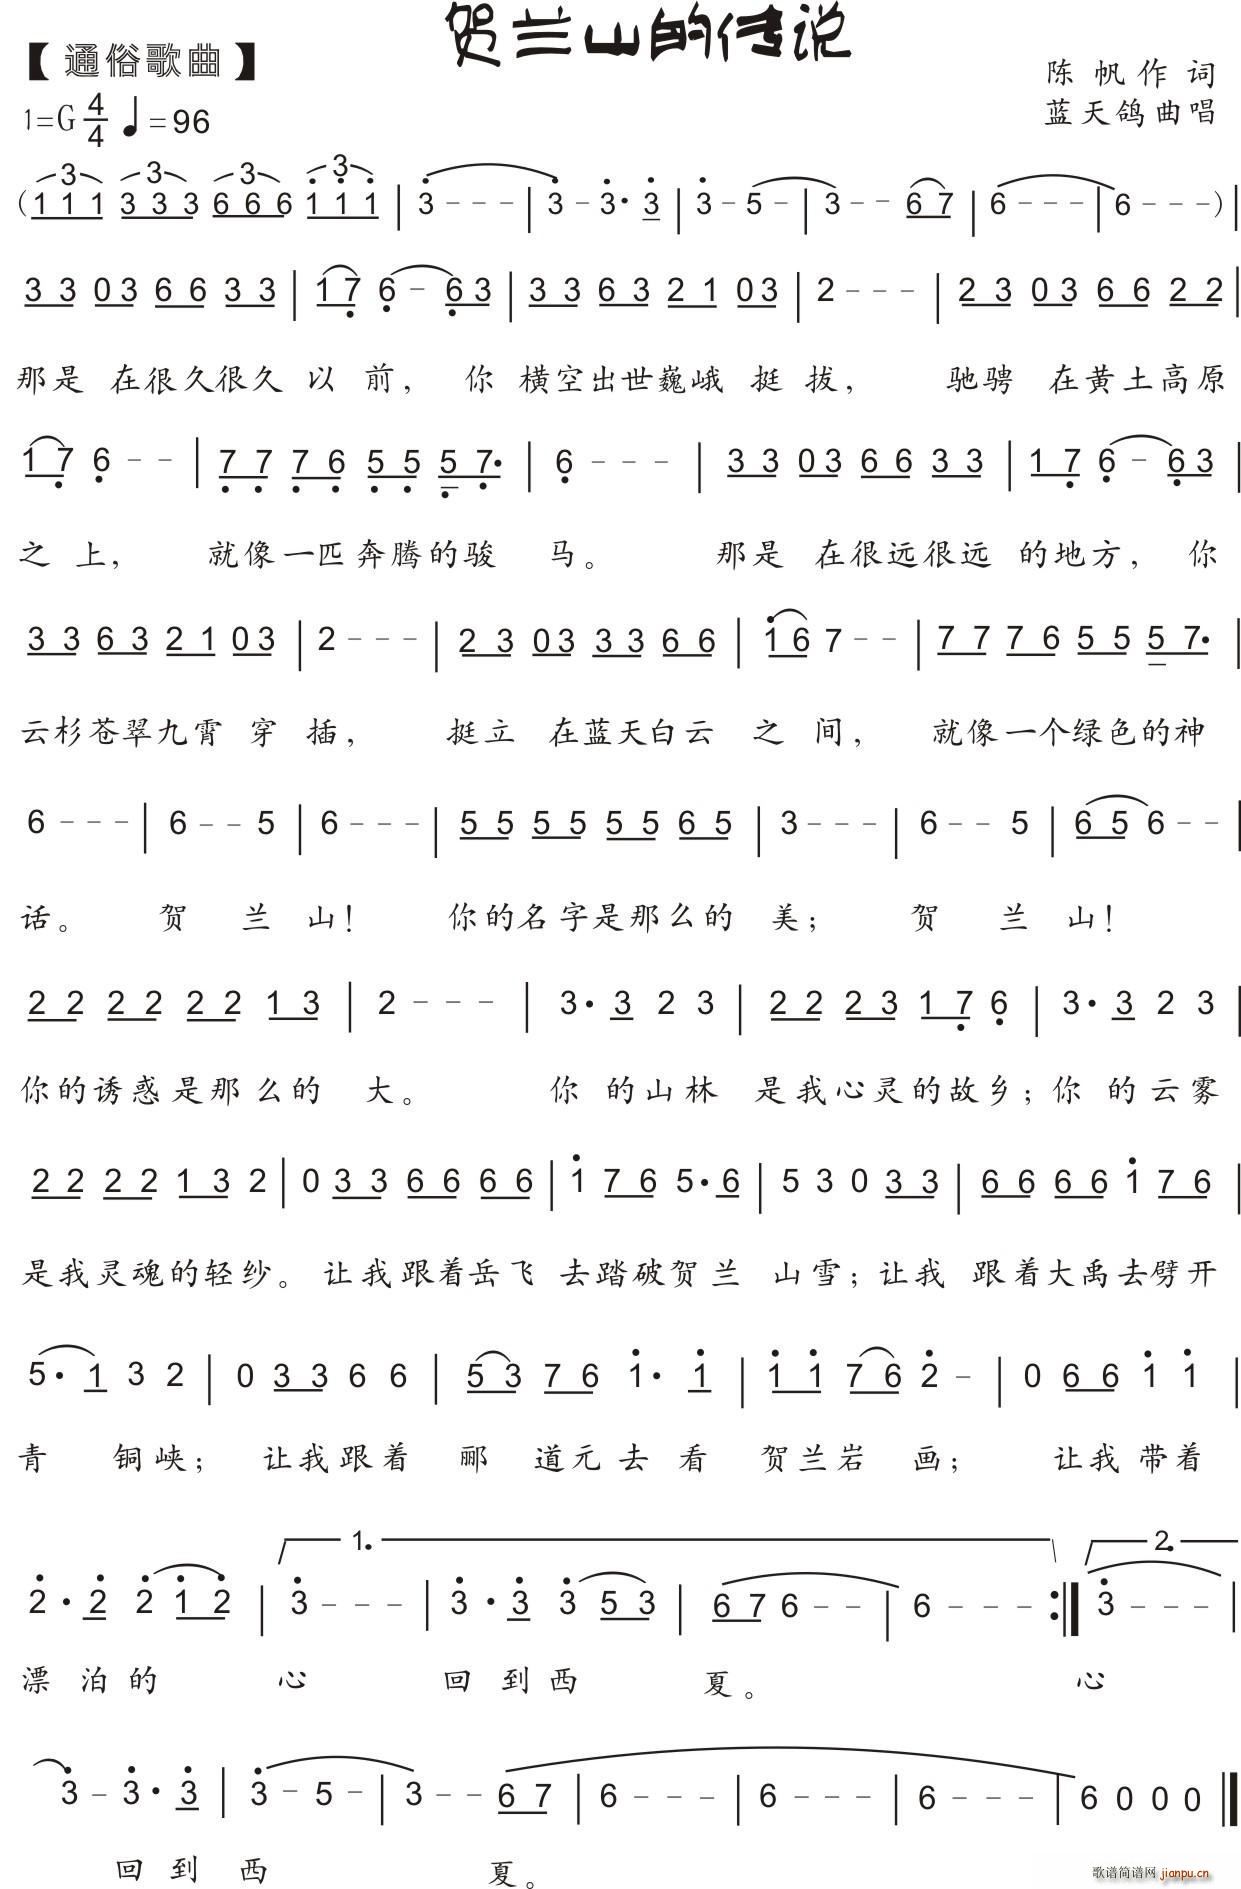 贺兰山的传说
【通俗歌曲】
陈帆作词
1=G 4/4 ♩=96
蓝天鸽曲唱
(1 1 1 3 3 3 6 6 6 1 1 1 | 3 - - - | 3 - 3· 3 | 3 - 5 - | 3 - - 6 7 | 6 - - - | 6 - - - ) |
3 3 0 3 6 6 3 3 | 1 7 6 - 6 3 | 3 3 6 3 2 1 0 3 | 2 - - - | 2 3 0 3 6 6 2 2 |
那是 在很久很久 以 前， 你 横空出世巍峨 挺 拔， 驰骋 在黄土高原
1 7 6 - - | 7 7 7 6 5 5 5 7· | 6 - - - | 3 3 0 3 6 6 3 3 | 1 7 6 - 6 3 |
之 上， 就像一匹奔腾的骏 马。 那是 在很远很远 的地方， 你
3 3 6 3 2 1 0 3 | 2 - - - | 2 3 0 3 3 3 6 6 | 1 6 7 - - | 7 7 7 6 5 5 5 7· |
云杉苍翠九霄 穿 插， 挺立 在蓝天白云 之 间， 就像一个绿色的神
6 - - - | 6 - - 5 | 6 - - - | 5 5 5 5 5 5 6 5 | 3 - - - | 6 - - 5 | 6 5 6 - - |
话。 贺 兰 山！ 你的名字是那么的 美； 贺 兰 山！
2 2 2 2 2 2 1 3 | 2 - - - | 3· 3 2 3 | 2 2 2 3 1 7 6 | 3· 3 2 3 |
你的诱惑是那么的 大。 你 的山林 是我心灵的故乡；你 的云雾
2 2 2 2 1 3 2 | 0 3 3 6 6 6 6 | 1 7 6 5· 6 | 5 3 0 3 3 | 6 6 6 6 1 7 6 |
是我灵魂的轻纱。 让我跟着岳飞 去踏破贺兰 山雪；让我 跟着大禹去劈开
5· 1 3 2 | 0 3 3 6 6 | 5 3 7 6 1· 1 | 1 1 7 6 2 - | 0 6 6 1 1 |
青 铜峡； 让我跟着 郦 道元去看 贺兰岩 画； 让我带着
1. 2.
2· 2 2 1 2 | 3 - - - | 3· 3 3 5 3 | 6 7 6 - - | 6 - - - :| 3 - - - |
漂泊的 心 回到西 夏。 心
3 - 3· 3 | 3 - 5 - | 3 - - 6 7 | 6 - - - | 6 - - - | 6 - - - | 6 0 0 0 ||
回到西 夏。
歌谱简谱网 jianpu.cn